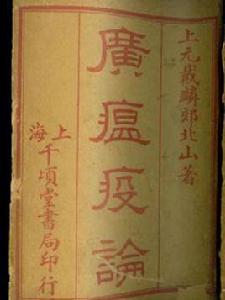 上元戴麟郊北山著
廣瘟疫論
上海千頃堂書局印行